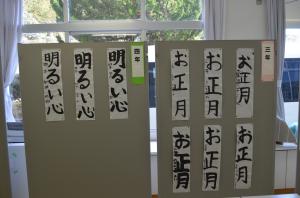 三年
お正月
お正月
お正月
お正月
お正月
お正月
四年
明るい心
明るい心
明るい心